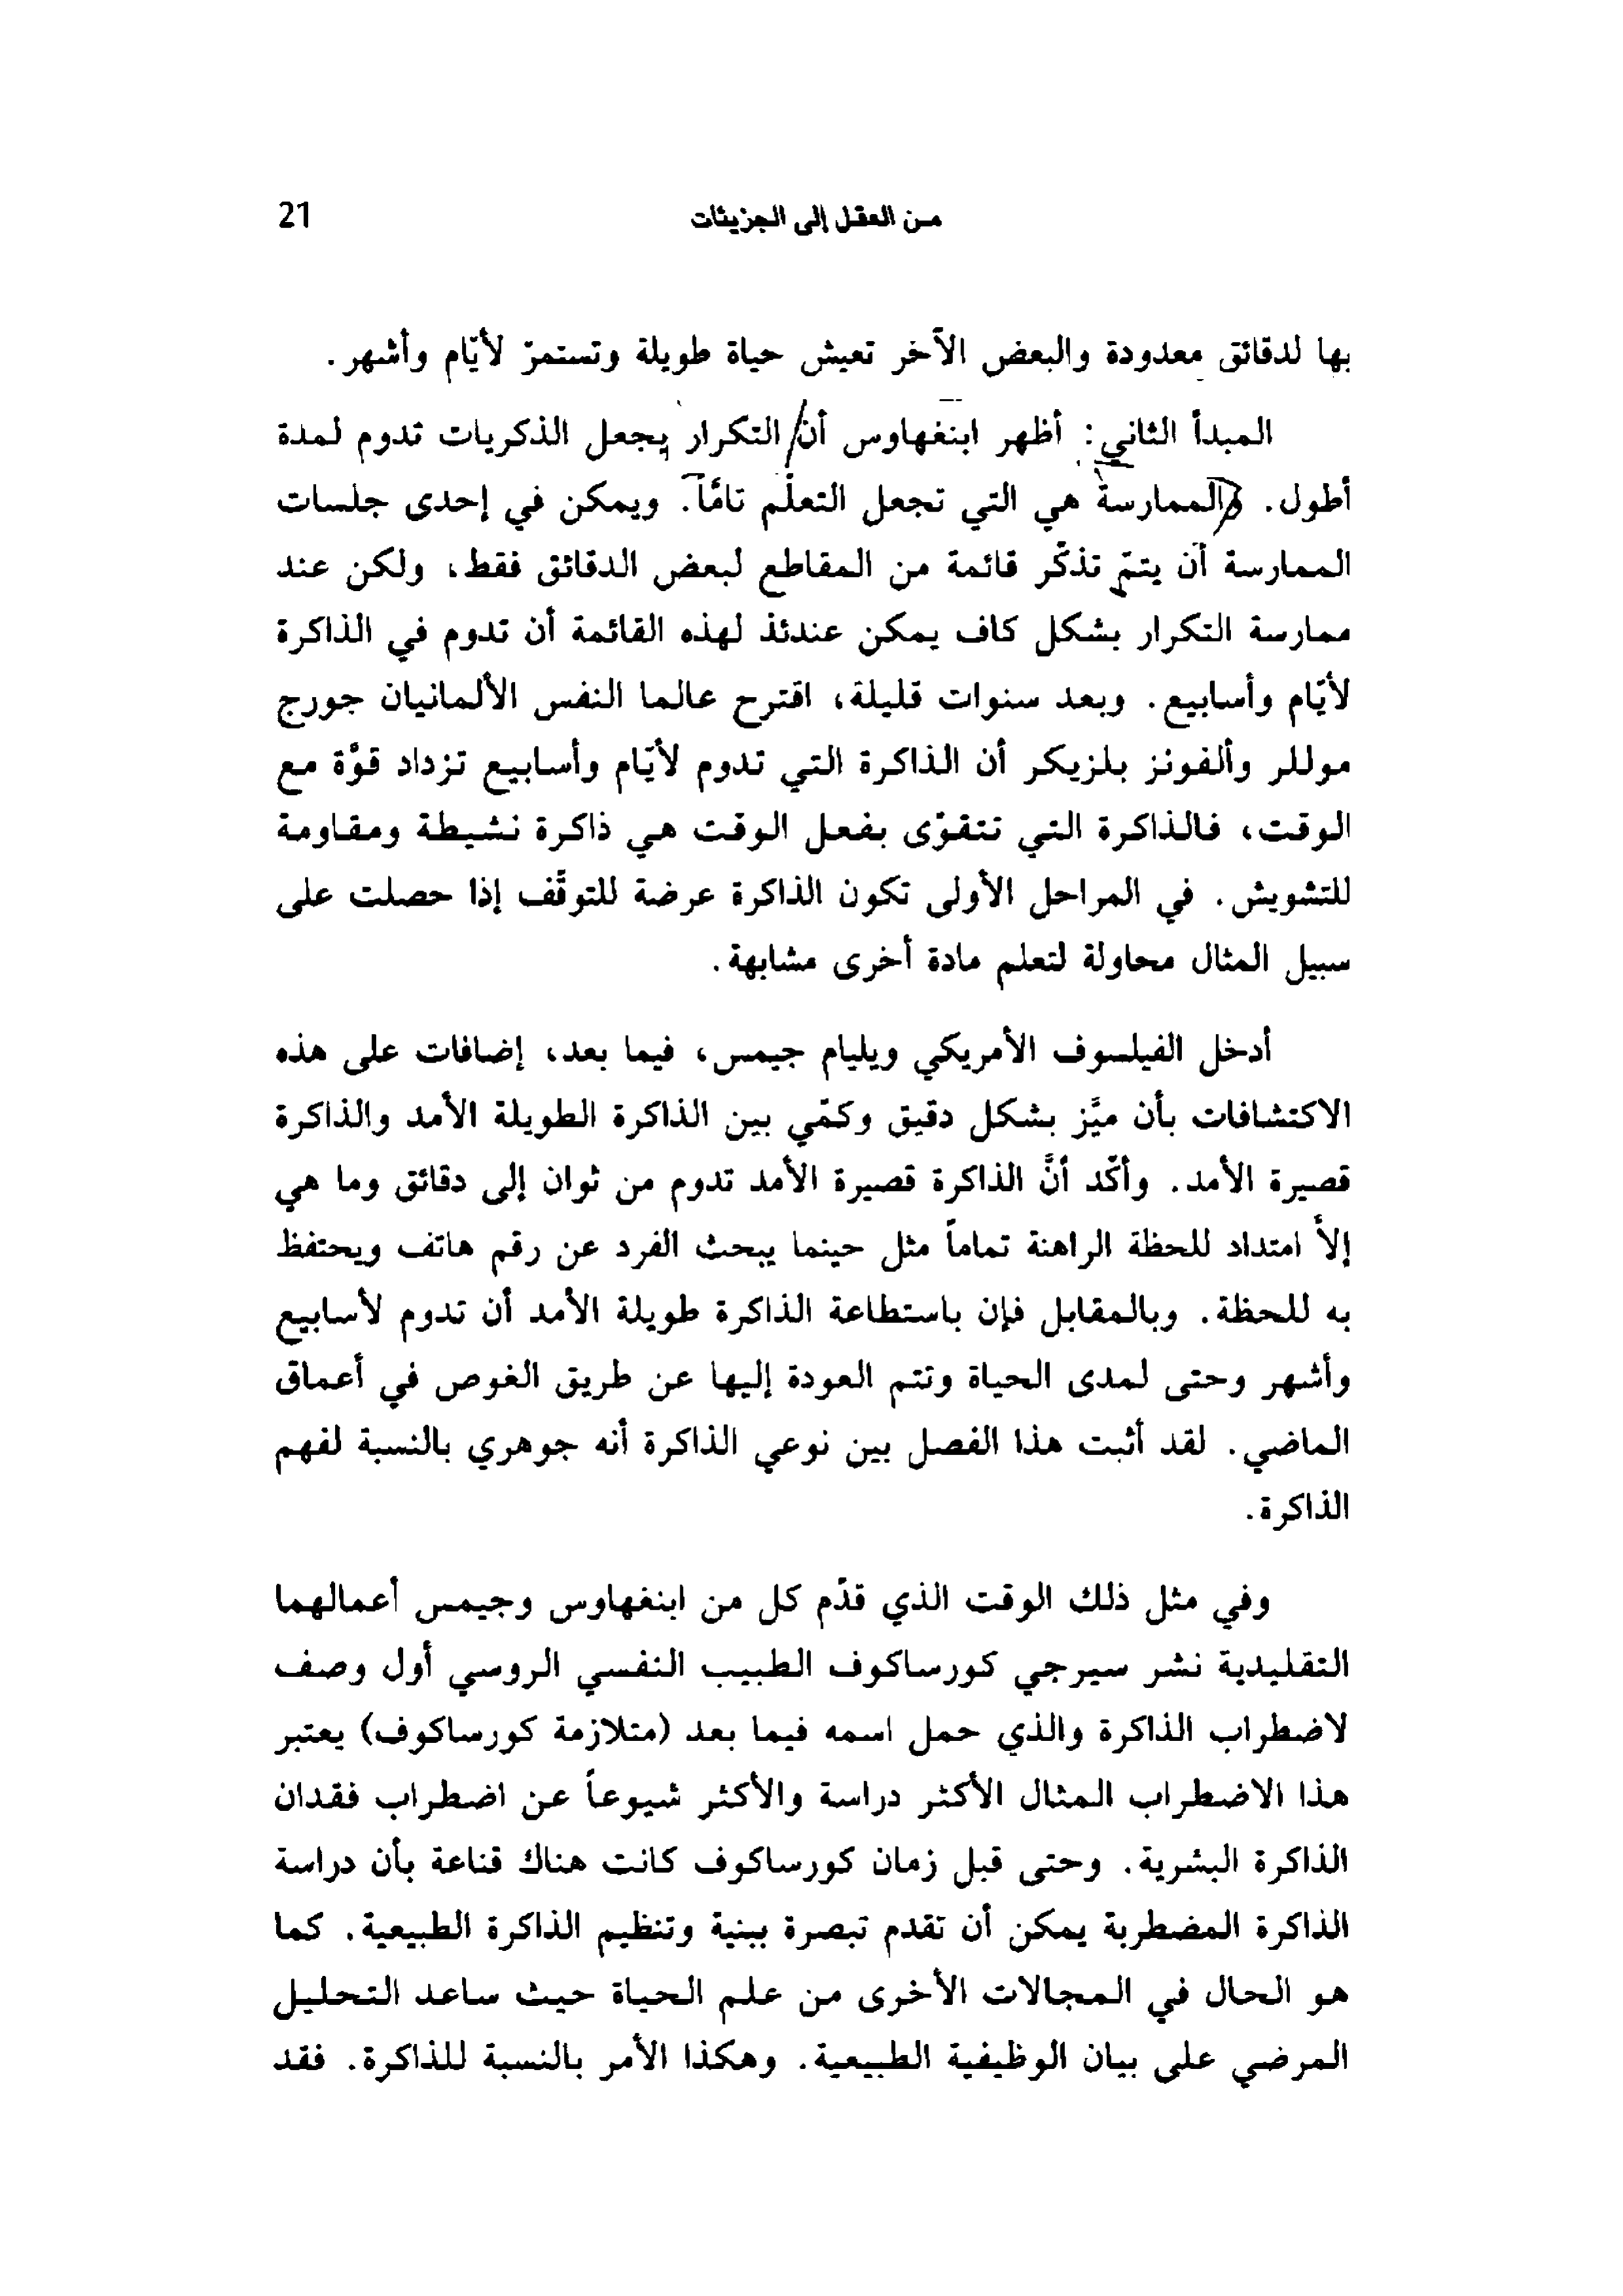 من العقل إلى الجزيئات 21
بها لدقائق معدودة والبعض الآخر تعيش حياة طويلة وتستمرّ لأيّام وأشهر.
المبدأ الثاني: أظهر ابنغهاوس أن التكرار يجعل الذكريات تدوم لمدة
أطول. والممارسة هي التي تجعل التعلّم تامّاً. ويمكن في إحدى جلسات
الممارسة أن يتمّ تذكّر قائمة من المقاطع لبعض الدقائق فقط، ولكن عند
ممارسة التكرار بشكل كاف يمكن عندئذ لهذه القائمة أن تدوم في الذاكرة
لأيّام وأسابيع. وبعد سنوات قليلة، اقترح عالما النفس الألمانيان جورج
موللر وألفونز بلزيكر أن الذاكرة التي تدوم لأيّام وأسابيع تزداد قوّة مع
الوقت، فالذاكرة التي تتقوّى بفعل الوقت هي ذاكرة نشيطة ومقاومة
للتشويش. في المراحل الأولى تكون الذاكرة عرضة للتوقّف إذا حصلت على
سبيل المثال محاولة لتعلم مادة أخرى مشابهة.
أدخل الفيلسوف الأمريكي ويليام جيمس، فيما بعد، إضافات على هذه
الاكتشافات بأن ميَّز بشكل دقيق وكمّي بين الذاكرة الطويلة الأمد والذاكرة
قصيرة الأمد. وأكّد أنَّ الذاكرة قصيرة الأمد تدوم من ثوان إلى دقائق وما هي
إلاّ امتداد للحظة الراهنة تماماً مثل حينما يبحث الفرد عن رقم هاتف ويحتفظ
به للحظة. وبالمقابل فإن باستطاعة الذاكرة طويلة الأمد أن تدوم لأسابيع
وأشهر وحتى لمدى الحياة وتتم العودة إليها عن طريق الغوص في أعماق
الماضي. لقد أثبت هذا الفصل بين نوعي الذاكرة أنه جوهري بالنسبة لفهم
الذاكرة.
وفي مثل ذلك الوقت الذي قدّم كل من ابنغهاوس وجيمس أعمالهما
التقليدية نشر سيرجي كورساكوف الطبيب النفسي الروسي أول وصف
لاضطراب الذاكرة والذي حمل اسمه فيما بعد (متلازمة كورساكوف) يعتبر
هذا الاضطراب المثال الأكثر دراسة والأكثر شيوعاً عن اضطراب فقدان
الذاكرة البشرية. وحتى قبل زمان كورساكوف كانت هناك قناعة بأن دراسة
الذاكرة المضطربة يمكن أن تقدم تبصرة ببنية وتنظيم الذاكرة الطبيعية. كما
هو الحال في المجالات الأخرى من علم الحياة حيث ساعد التحليل
المرضي على بيان الوظيفية الطبيعية. وهكذا الأمر بالنسبة للذاكرة. فقد